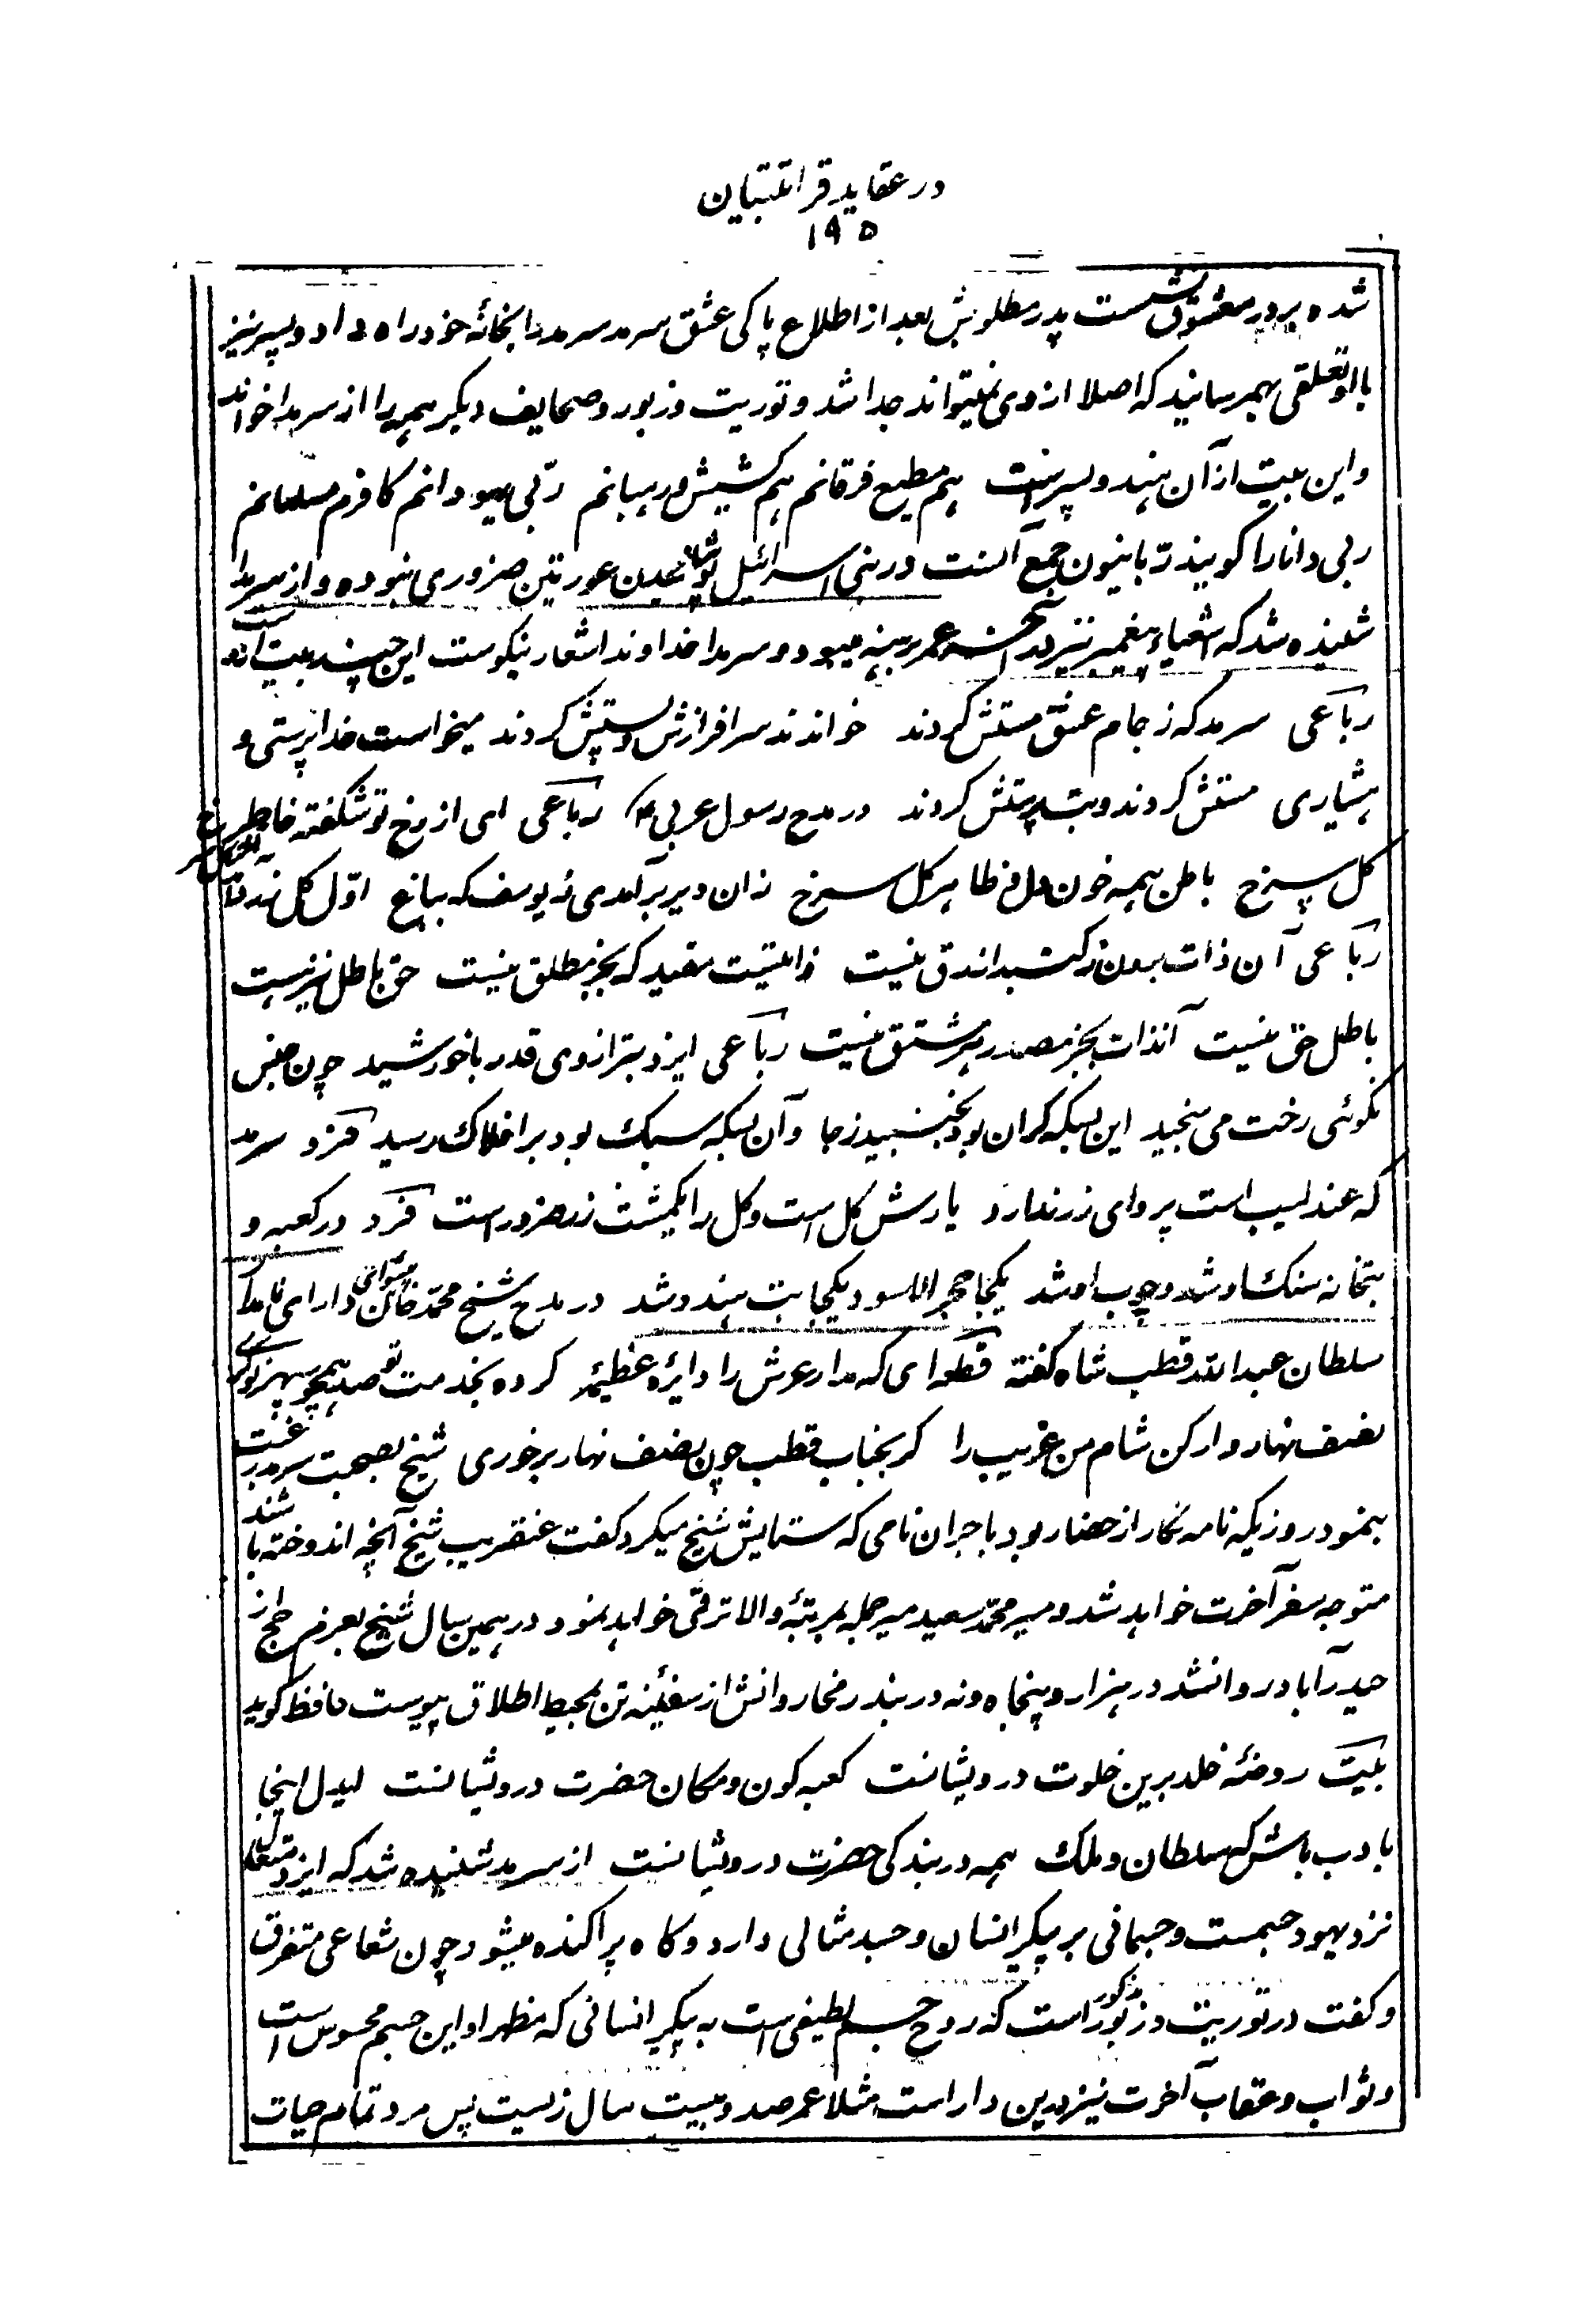 در عقاید قرائتیان
۱۹۵
شده بر در معشوق نشست پدر مطلوبش بعد از اطلاع پاکی عشق سرمد سرمد را بخانهٔ خود راه داد و پسر نیز
با او تعلقی بهمرسانید که اصلا از وی نمیتواند جدا شد و توریت و زبور و صحایف دیگر همه را از سرمدا خواند
و این بیت از آن هندو پسر است هم مطیع فرقانم هم کشیش و رهبانم ربّی یهودانم کافرم مسلمانم
ربی دانا را گویند ربانیون جمع آنست در بنی اسرائیل پوشانیدن عورتین ضروری نبوده و از سرمدا
شنیده شد که اشعیاء پیغمبر نیز در آخر عمر برهنه میبود و سرمدا خداوند اشعار نیکوست این چند بیت از او
رباعی سرمد که ز جام عشق مستش کردند خواندند سرافرازش و پستش کردند میخواست خدا پرستی و
هشیاری مستش کردند و بت پرستش کردند در مدح رسول عربی رباعی ای از رخ تو شکفته خاطر
گل سرخ باطن همه خون دل و ظاهر گل سرخ زان دیر برآمدی ز یوسف که بباغ اوّل گل زرد
رباعی آن ذات برون ز گنبد ازرق نیست ذاتیست مقید که بجز مطلق نیست حق باطل نیز نیست
باطل حق نیست آنذات بجز مصدر هر مشتق نیست رباعی ایزد بترازوی قدر با خورشید چون جنس
نکوئی رخت می سنجید این بسکه گران بود نجنبید ز جا و آن بسکه سبک بود بر افلاک رسید فرد سرمد
که عندلیب است پروای زر ندارد یارش گل است و گل را یکمشت زر ضرور است فرد در کعبه و
بتخانه سنگ او شد و چوب او شد یکجا حجر الاسود و یکجا بت هندو شد در مدح شیخ محمّد خاتون پیشوای دارای نامدار
سلطان عبد الله قطب شاه گفته قطعه ای که مدار عرش را دایرهٔ عظیمهٔ کرده بخدمت تو صد همچو سپهر نوکری
نصف نهار وار کن شام من غریب را گر بجناب قطب چون نصف نهار برخوری شیخ بصحبت سرمد رغبت
ننمود روزیکه نامه نگار از حضار بود با جران نامی که ستایش شیخ میکرد گفت عنقریب شیخ آنچه اندوخته باشند
متوجه سفر آخرت خواهد شد و میر محمّد سعید میر جمله بمرتبهٔ والا ترقی خواهد نمود در همین سال شیخ بعزم حج از
حیدرآباد روانشد در هزار و پنجاه و نه در بندر مخا روانش از سفینهٔ تن بمحیط اطلاق پیوست حافظ گوید
بیت روضهٔ خلد برین خلوت درویشانست کعبه کون و مکان حضرت درویشانست ایدل اینجا
بادب باش که سلطان و ملک همه در بندگی حضرت درویشانست از سرمد شنیده شد که ایزد متعال
نزد یهود جسمست و جسمانی بر پیکر انسان و جسد مثالی دارد و گاه پراکنده میشود چون شعاعی متفرق
و گفت در توریت و زبور مذکور است که روح جسم لطیفی است به پیکر انسانی که مظهر او این جسم محسوس است
و ثواب و عقاب آخرت نیز درین دار است مثلا عمر صد و بیست سال زیست پس مرد تمام حیات